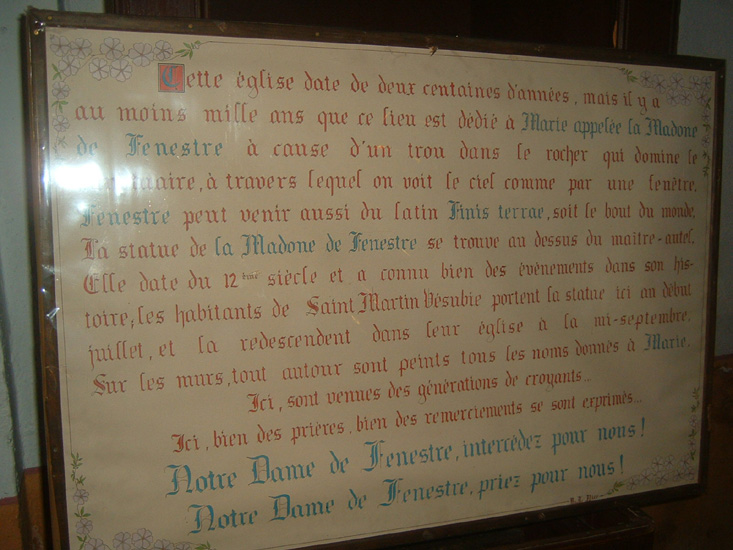 Cette église date de deux centaines d'années, mais il y a
au moins mille ans que ce lieu est dédié à Marie appelée la Madone
de Fenestre à cause d'un trou dans le rocher qui domine le
sanctuaire, à travers lequel on voit le ciel comme par une fenêtre.
Fenestre peut venir aussi du latin Finis terrae, soit le bout du monde.
La statue de la Madone de Fenestre se trouve au dessus du maître-autel.
Elle date du 12ème siècle et a connu bien des évènements dans son his-
toire; les habitants de Saint Martin Vésubie portent la statue ici au début
juillet, et la redescendent dans leur église à la mi-septembre.
Sur les murs, tout autour sont peints tous les noms donnés à Marie.
Ici, sont venues des générations de croyants...
Ici, bien des prières, bien des remerciements se sont exprimés...
Notre Dame de Fenestre, intercédez pour nous!
Notre Dame de Fenestre, priez pour nous!